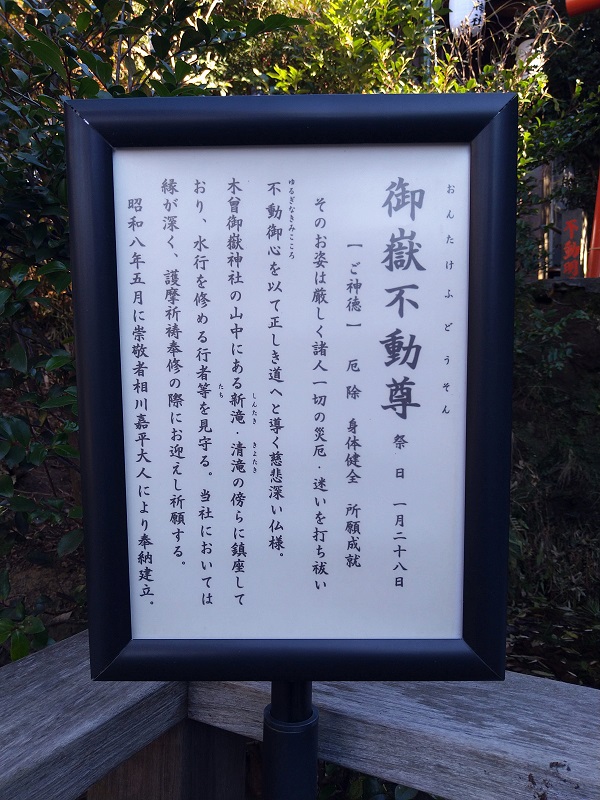 おんたけふどうそん
御嶽不動尊 祭日 一月二十八日
【ご神徳】 厄除 身体健全 所願成就
そのお姿は厳しく諸人一切の災厄・迷いを打ち祓い
ゆるぎなきみこころ
不動御心を以て正しき道へと導く慈悲深い仏様。
木曽御嶽神社の山中にある新滝・清滝の傍らに鎮座して
しんたき きよたき
おり、水行を修める行者等を見守る。当社においては
たち
縁が深く、護摩祈祷奉修の際にお迎えし祈願する。
昭和八年五月に崇敬者相川嘉平大人により奉納建立。